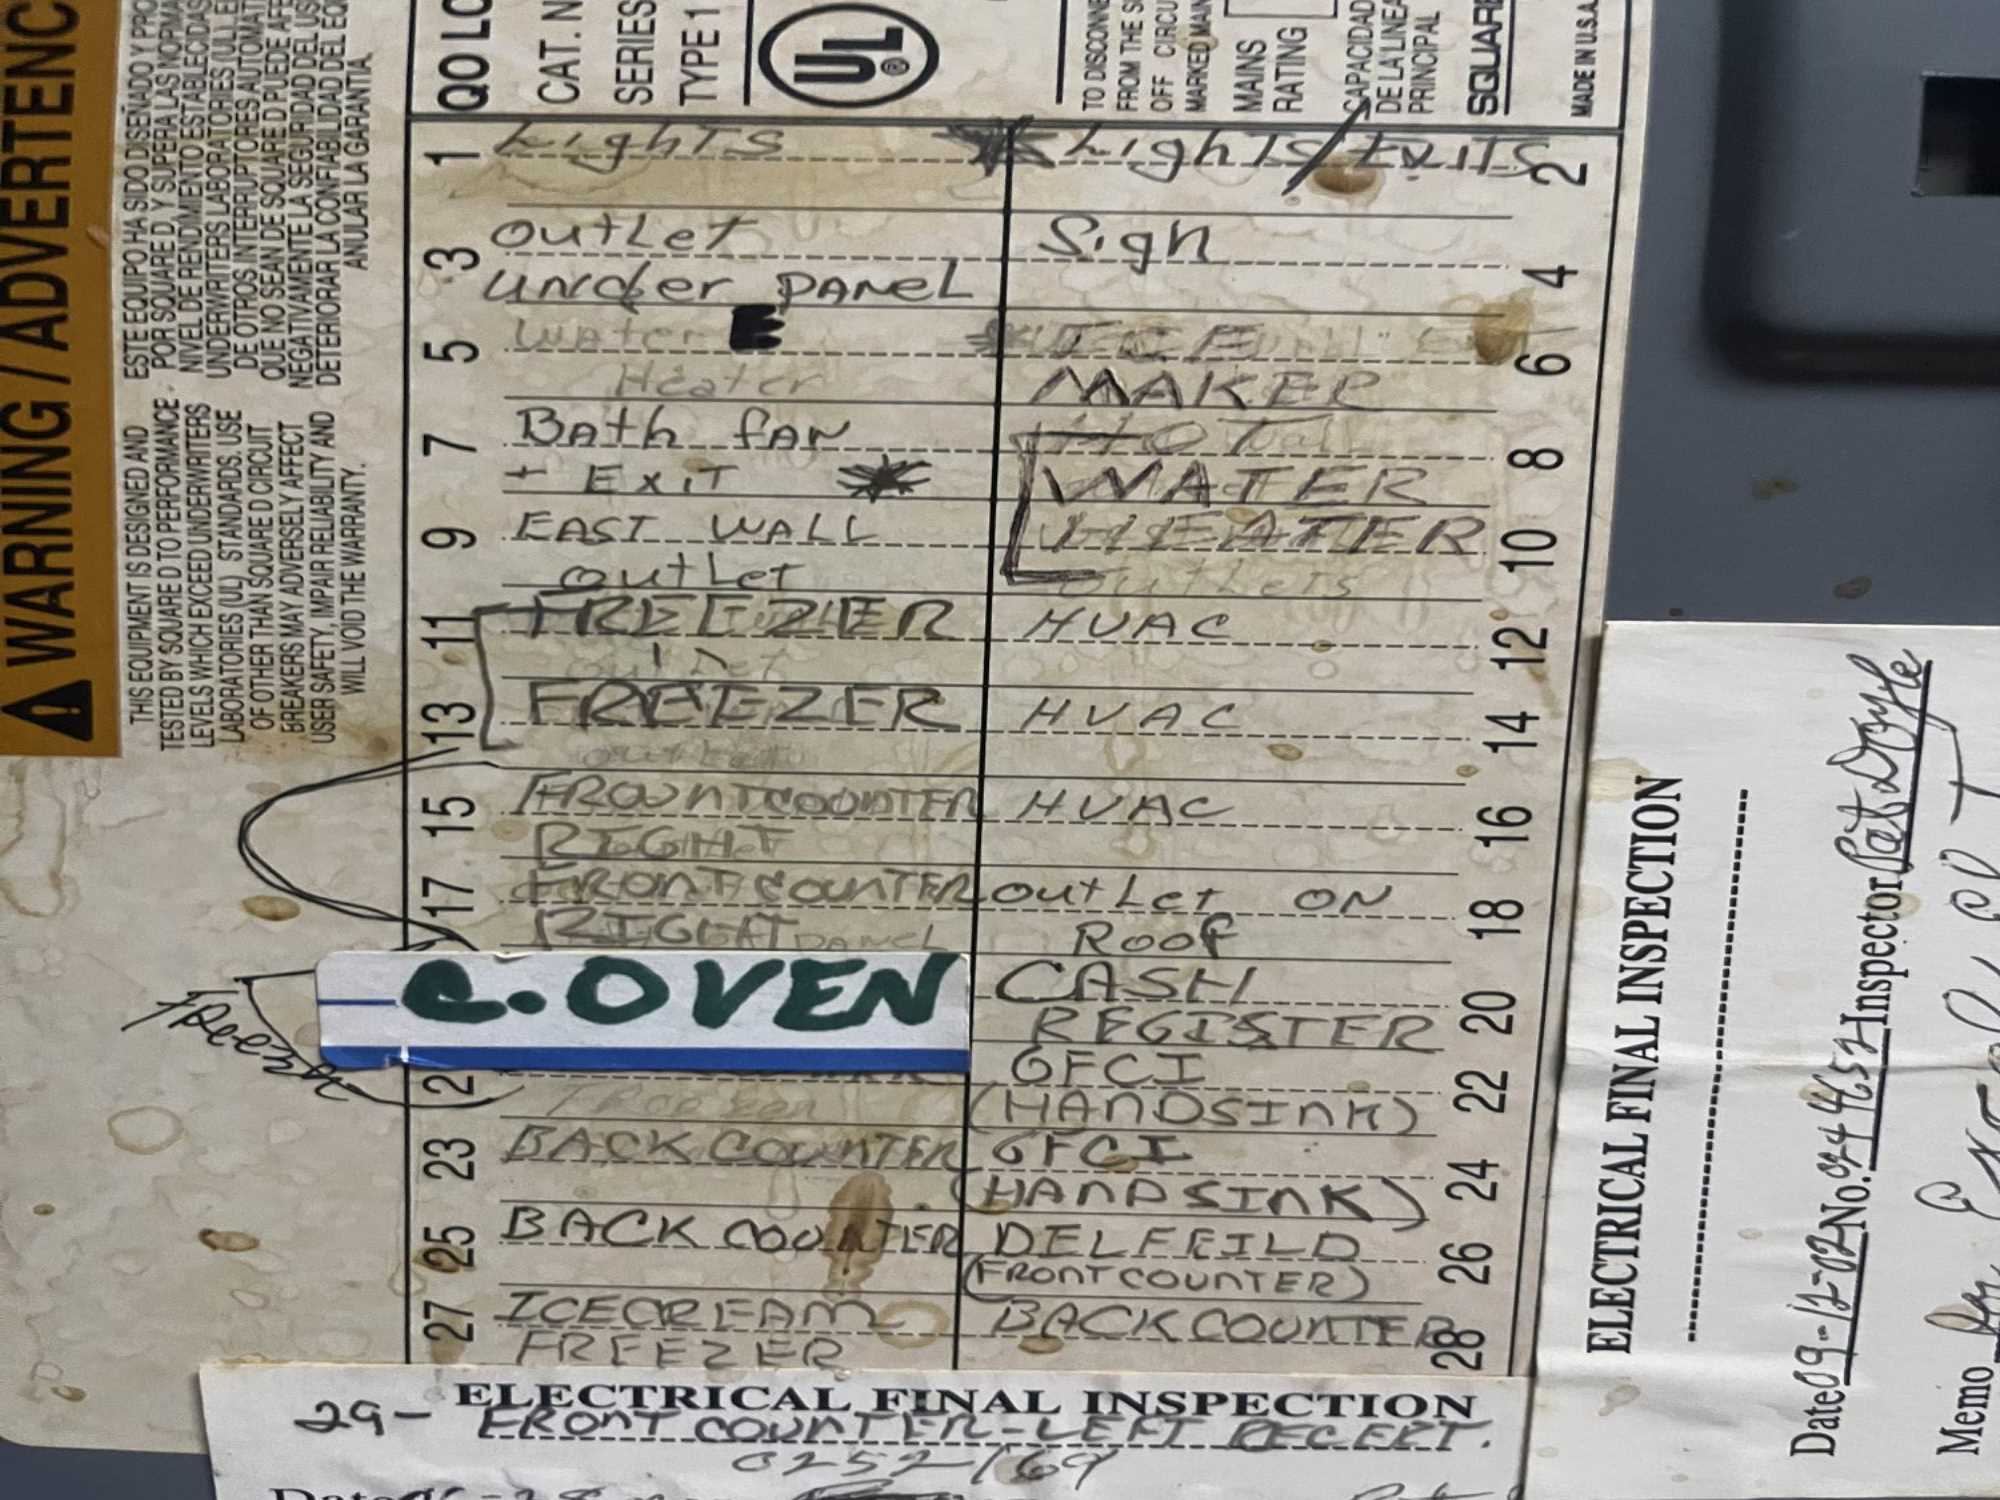 WARNING / ADVERTENC
THIS EQUIPMENT IS DESIGNED AND
TESTED BY SQUARE D TO PERFORMANCE
LEVELS WHICH EXCEED UNDERWRITERS
LABORATORIES (UL) STANDARDS. USE
OF OTHER THAN SQUARE D CIRCUIT
BREAKERS MAY ADVERSELY AFFECT
USER SAFETY, IMPAIR RELIABILITY AND
WILL VOID THE WARRANTY.
ESTE EQUIPO HA SIDO DISEÑADO Y PRO
POR SQUARE D, Y SUPERA LAS NORMA
NIVEL DE RENDIMIENTO ESTABLECIDAS
UNDERWRITERS LABORATORIES (UL). E
DE OTROS INTERRUPTORES AUTOMAT
QUE NO SEAN DE SQUARE D PUEDE AFE
NEGATIVAMENTE LA SEGURIDAD DEL US
DETERIORAR LA CONFIABILIDAD DEL EQ
ANULAR LA GARANTIA.
QO LC
CAT. N
SERIES
TYPE 1
UL®
TO DISCONNE
FROM THE S
OFF CIRCU
MARKED MAIN
MAINS
RATING
CAPACIDAD
DE LA LINEA
PRINCIPAL
SQUARE
MADE IN U.S.A.
1 Lights
Lights/Exits 2
3 Outlet
under panel
Sign 4
5 Water E
Heater
ICE
MAKER 6
7 Bath fan
+ Exit
HOT
WATER 8
9 EAST WALL
outlet
HEATER
outlets 10
11 FREEZER
outlet
HVAC 12
13 FREEZER
outlet
HVAC 14
15 FROUNTCOUNTER
RIGHT
HVAC 16
17 FRONTCOUNTER
RIGHT PANEL
outlet ON
Roof 18
C. OVEN
CASH
REGISTER 20
2
GFCI
(HANDSINK) 22
23 BACKCOUNTER
GFCI
(HANDSINK) 24
25 BACKCOUNTER
DELFEILD
(FRONTCOUNTER) 26
27 ICECREAM
FREEZER
BACKCOUNTER 28
ELECTRICAL FINAL INSPECTION
29- FRONT COUNTER-LEFT RECEPT.
0252169
Date
ELECTRICAL FINAL INSPECTION
Date 09-12-02 No. Inspector Pat Doyle
Memo